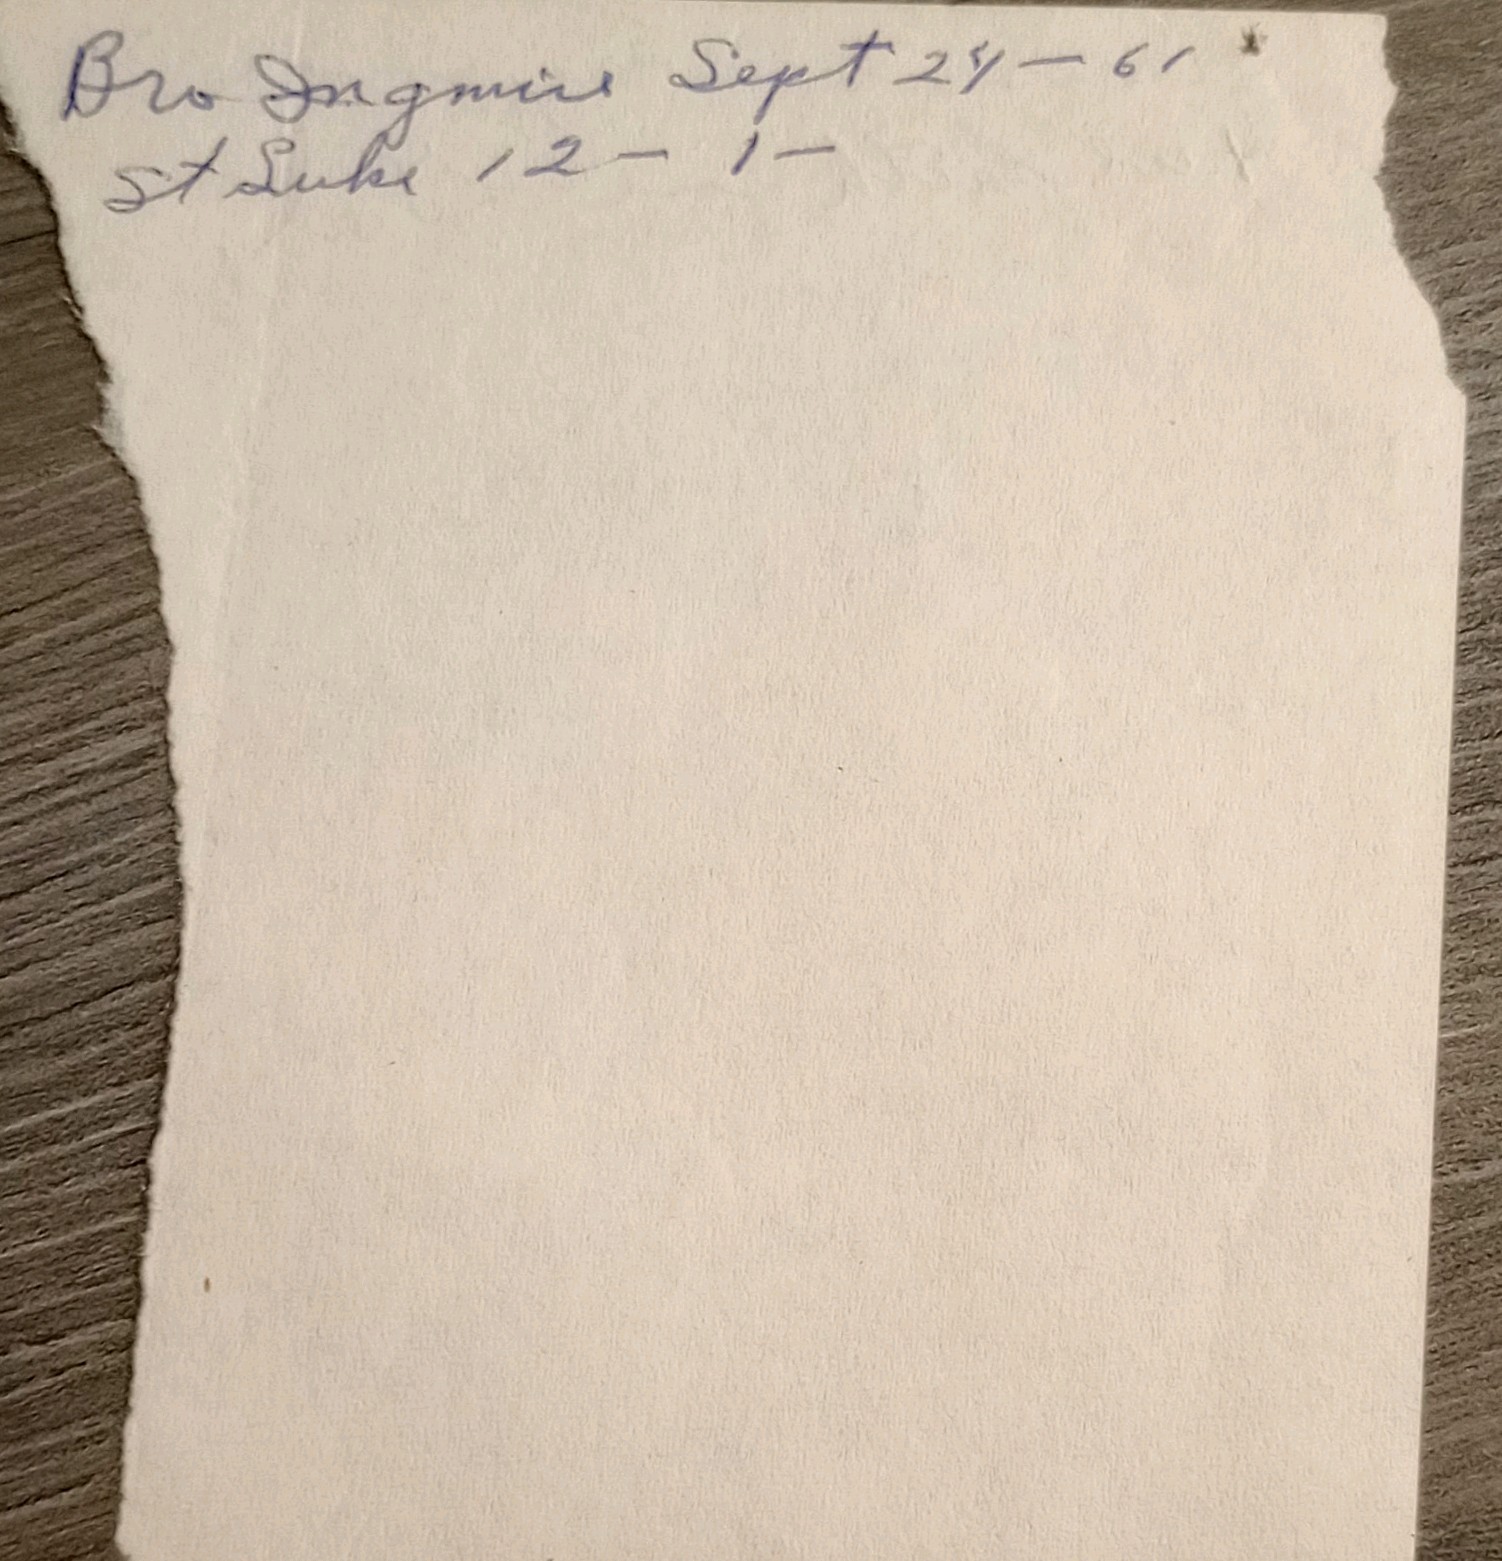 Bro Ingmire Sept 24 - 61
St Luke 12 - 1 -